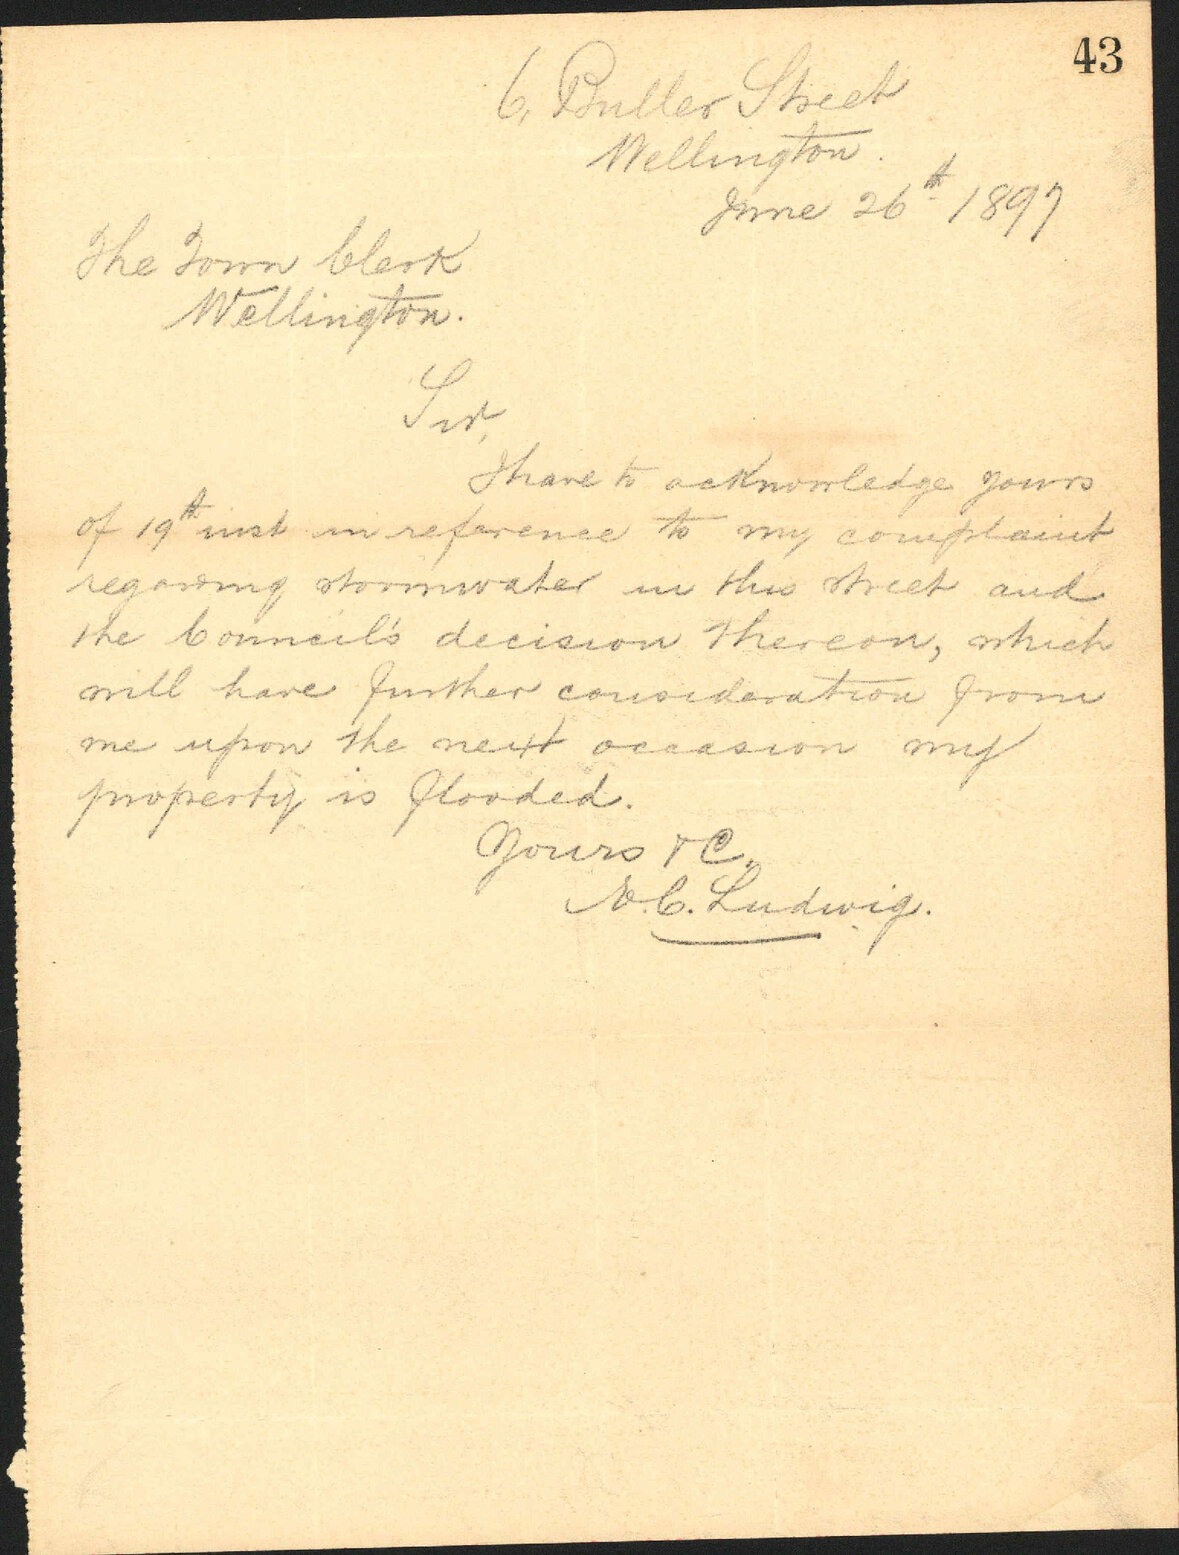 43
6, Buller Street
Wellington.
June 26th 1897
The Town Clerk
Wellington.
Sir,
I have to acknowledge yours
of 19th inst in reference to my complaint
regarding stormwater in this street and
the Council's decision thereon, which
will have further consideration from
me upon the next occasion my
property is flooded.
Yours &C,
C. Ludwig.